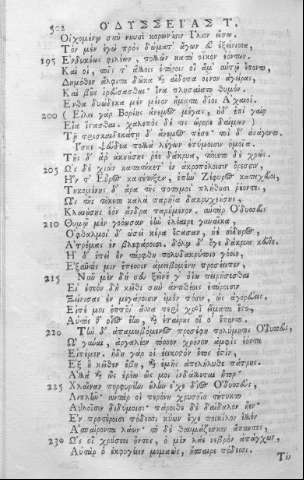 302 ὈΔΥΣΣΕΙΑΣ Τ,
Οἰχομένῳ σὺν νηυσὶ κορωνίσιν Ἴλιον εἴσω.
Τὸν μὲν ἐγὼ πρὸς δώματ' ἄγων εὖ ἐξείνισσα,
195 Ἐνδυκέως φιλέων, πολλῶν κατὰ οἶκον ἐόντων.
Καί οἱ, τοῖς τ' ἄλλοις ἑτάροις οἳ ἅμ' αὐτῷ ἕποντο,
Δημόθεν ἄλφιτα δῶκα καὶ αἴθοπα οἶνον ἀγείρας,
Καὶ βοῦς ἱρεύσασθαι· ἵνα πλησαίατο θυμόν.
Ἔνθα δυώδεκα μὲν μένον ἤματα δῖοι Ἀχαιοί.
200 (Εἴλει γὰρ Βορέης ἄνεμος μέγας, οὐδ' ἐπὶ γαίῃ
Εἴα ἵστασθαι. χαλεπὸς δέ τις ὤρορε δαίμων·)
Τῇ τρισκαιδεκάτῃ δ' ἄνεμος πέσε· τοὶ δ' ἀνάγοντο.
Ἴσκε ψεύδεα πολλὰ λέγων ἐτύμοισιν ὁμοῖα.
Τῆς δ' ἄρ' ἀκουούσης ῥέε δάκρυα, τήκετο δὲ χρώς.
205 Ὡς δὲ χιὼν κατατήκετ' ἐν ἀκροπόλοισιν ὄρεσσιν,
Ἥν τ' Εὖρος κατέτηξεν, ἐπὴν Ζέφυρος καταχεύῃ,
Τηκομένης δ' ἄρα τῆς ποταμοὶ πλήθουσι ῥέοντες,
Ὣς τῆς τήκετο καλὰ παρήϊα δακρυχεούσης,
Κλαιούσης ἑὸν ἄνδρα παρήμενον. αὐτὰρ Ὀδυσσεὺς
210 Θυμῷ μὲν γοόωσαν ἑὴν ἐλέαιρε γυναῖκα·
Ὀφθαλμοὶ δ' ὡσεὶ κέρα ἕστασαν, ἠὲ σίδηρος,
Ἀτρέμας ἐν βλεφάροισι. δόλῳ δ' ὅγε δάκρυα κεῦθε.
Ἡ δ' ἐπεὶ οὖν τάρφθη πολυδακρύτοιο γόοιο,
Ἐξαῦτίς μιν ἔπεσσιν ἀμειβομένη προσέειπεν,
215 Νῦν μὲν δή σευ ξεῖνέ γ' ὀΐω πειρήσεσθαι
Εἰ ἐτεὸν δὴ κεῖθι σὺν ἀντιθέοις ἑτάροισι
Ξείνισας ἐν μεγάροισιν ἐμὸν πόσιν, ὡς ἀγορεύεις.
Εἰπέ μοι ὁπποῖ' ἄσσα περὶ χροῒ εἵματα ἕστο,
Αὐτός θ' οἷος ἔην, καὶ ἑταίρους οἵ οἱ ἕποντο.
220 Τὴν δ' ἀπαμειβόμενος προσέφη πολύμητις Ὀδυσσεύς,
Ὦ γύναι, ἀργαλέον τόσσον χρόνον ἀμφὶς ἐόντα
Εἰπέμεν. ἤδη γὰρ οἱ ἐεικοστὸν ἔτος ἐστίν,
Ἐξ οὗ κεῖθεν ἔβη, καὶ ἐμῆς ἀπελήλυθε πάτρης.
Αὐτὰρ τοὶ ἐρέω ὥς μοι ἰνδάλλεται ἦτορ·
225 Χλαῖναν πορφυρέην οὔλην ἔχε δῖος Ὀδυσσεύς,
Διπλῆν· αὐτάρ οἱ περόνη χρυσοῖο τέτυκτο
Αὐλοῖσιν διδύμοισι· πάροιθε δὲ δαίδαλον ἦεν·
Ἐν προτέροισι πόδεσσι κύων ἔχε ποικίλον ἐλλὸν
Ἀσπαίροντα λάων· τὸ δὲ θαυμάζεσκον ἅπαντες,
230 Ὡς οἱ χρύσεοι ὄντες, ὁ μὲν λάε νεβρὸν ἀπάγχων,
Αὐτὰρ ὁ ἐκφυγέειν μεμαώς, ἤσπαιρε πόδεσσι.
Τὸν